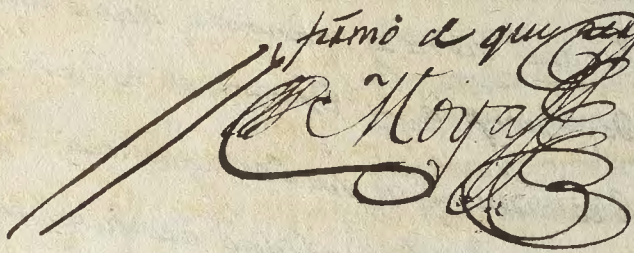 firmó de que
Moya